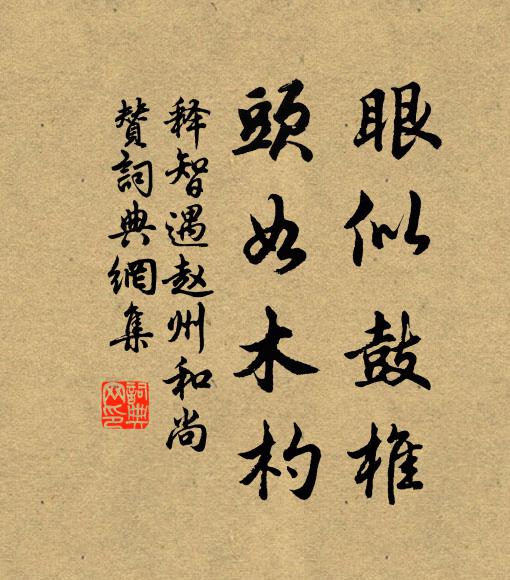 眼似鼓椎
頭如木杓
释智遇赵州和尚
赞詞典網集
詞典
网印